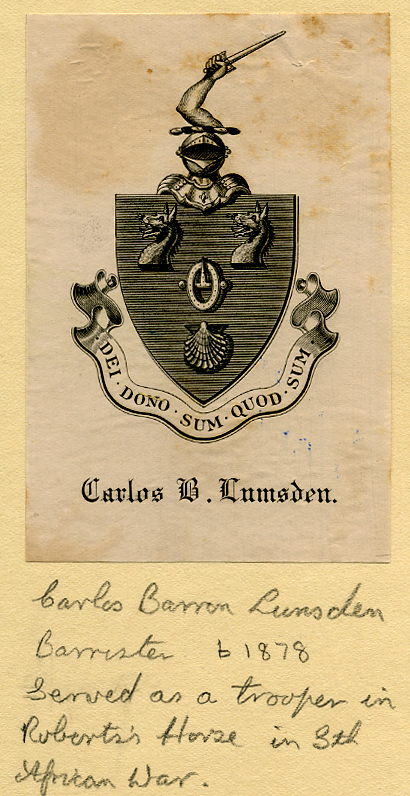 DEI · DONO · SUM · QUOD · SUM
Carlos B. Lumsden.
Carlos Barron Lumsden
Barrister b 1878
Served as a trooper in
Roberts's Horse in Sth
African War.